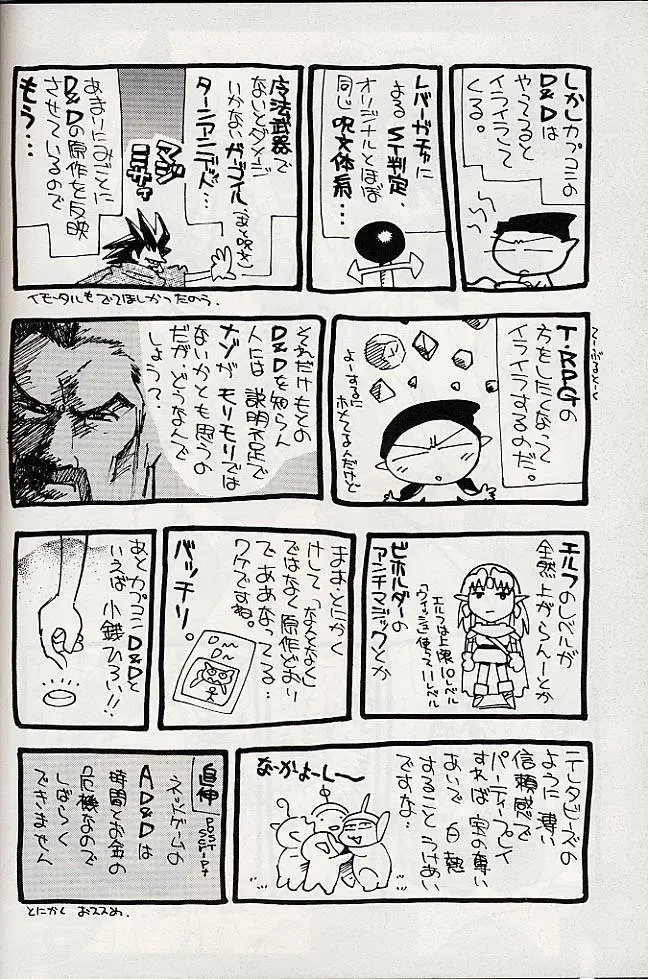 しかしカプコンの
D&Dは
やってると
イライラして
くる。
レバーガチャに
よるST判定、
オリジナルとほぼ
同じ呪文体系…
魔法武器で
ないとダメージ
いかないガーゴイル(まと呪文)
ターンアンデッド…
マジ
ニガイ
あまりにみごとに
D&Dの原作を反映
させているので
もう…
イモータルもでてほしかったのう。
てーぶるとーく
T・RPGの
方をしたくなって
イライラするのだ。
よーするに
ホメてるんだけど
それだけもとの
D&Dを知らん
人には説明不足で
ナゾがモリモリでは
ないかとも思うの
だが、どうなんで
しょうて、
エルフのレベルが
全然上がらんーとか
エルフは上限10レベル
「ウィッシュ」使って11レベル
ビホルダーの
アンチマジックとか
まあ、とにかく
けして「なんとなく」
ではなく原作どおり
であああなってる…
ワケですね。
バッチリ。
D〜
D〜
あとカプコンD&Dと
いえば小銭ひろい!!
テレタビーズの
ように薄い
信頼感で
パーティープレイ
すれば宝の奪い
あいで白熱
することうけあい
ですな…
なーかよーしー
追伸
POST
SCRIPt
ネットゲームの
AD&Dは
時間とお金の
危機なので
しばらく
できません
とにかくおススめ。